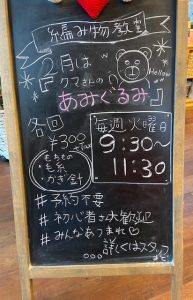 編み物教室
2月は
クマさんの
Hellow
あみぐるみ』
各回
¥300
もちもの
・毛糸
・かぎ針
毎週火曜日
9:30~
11:30
#予約不要
#初心者さん大歓迎
#みんなあつまれ♡
詳しくはスタッフ